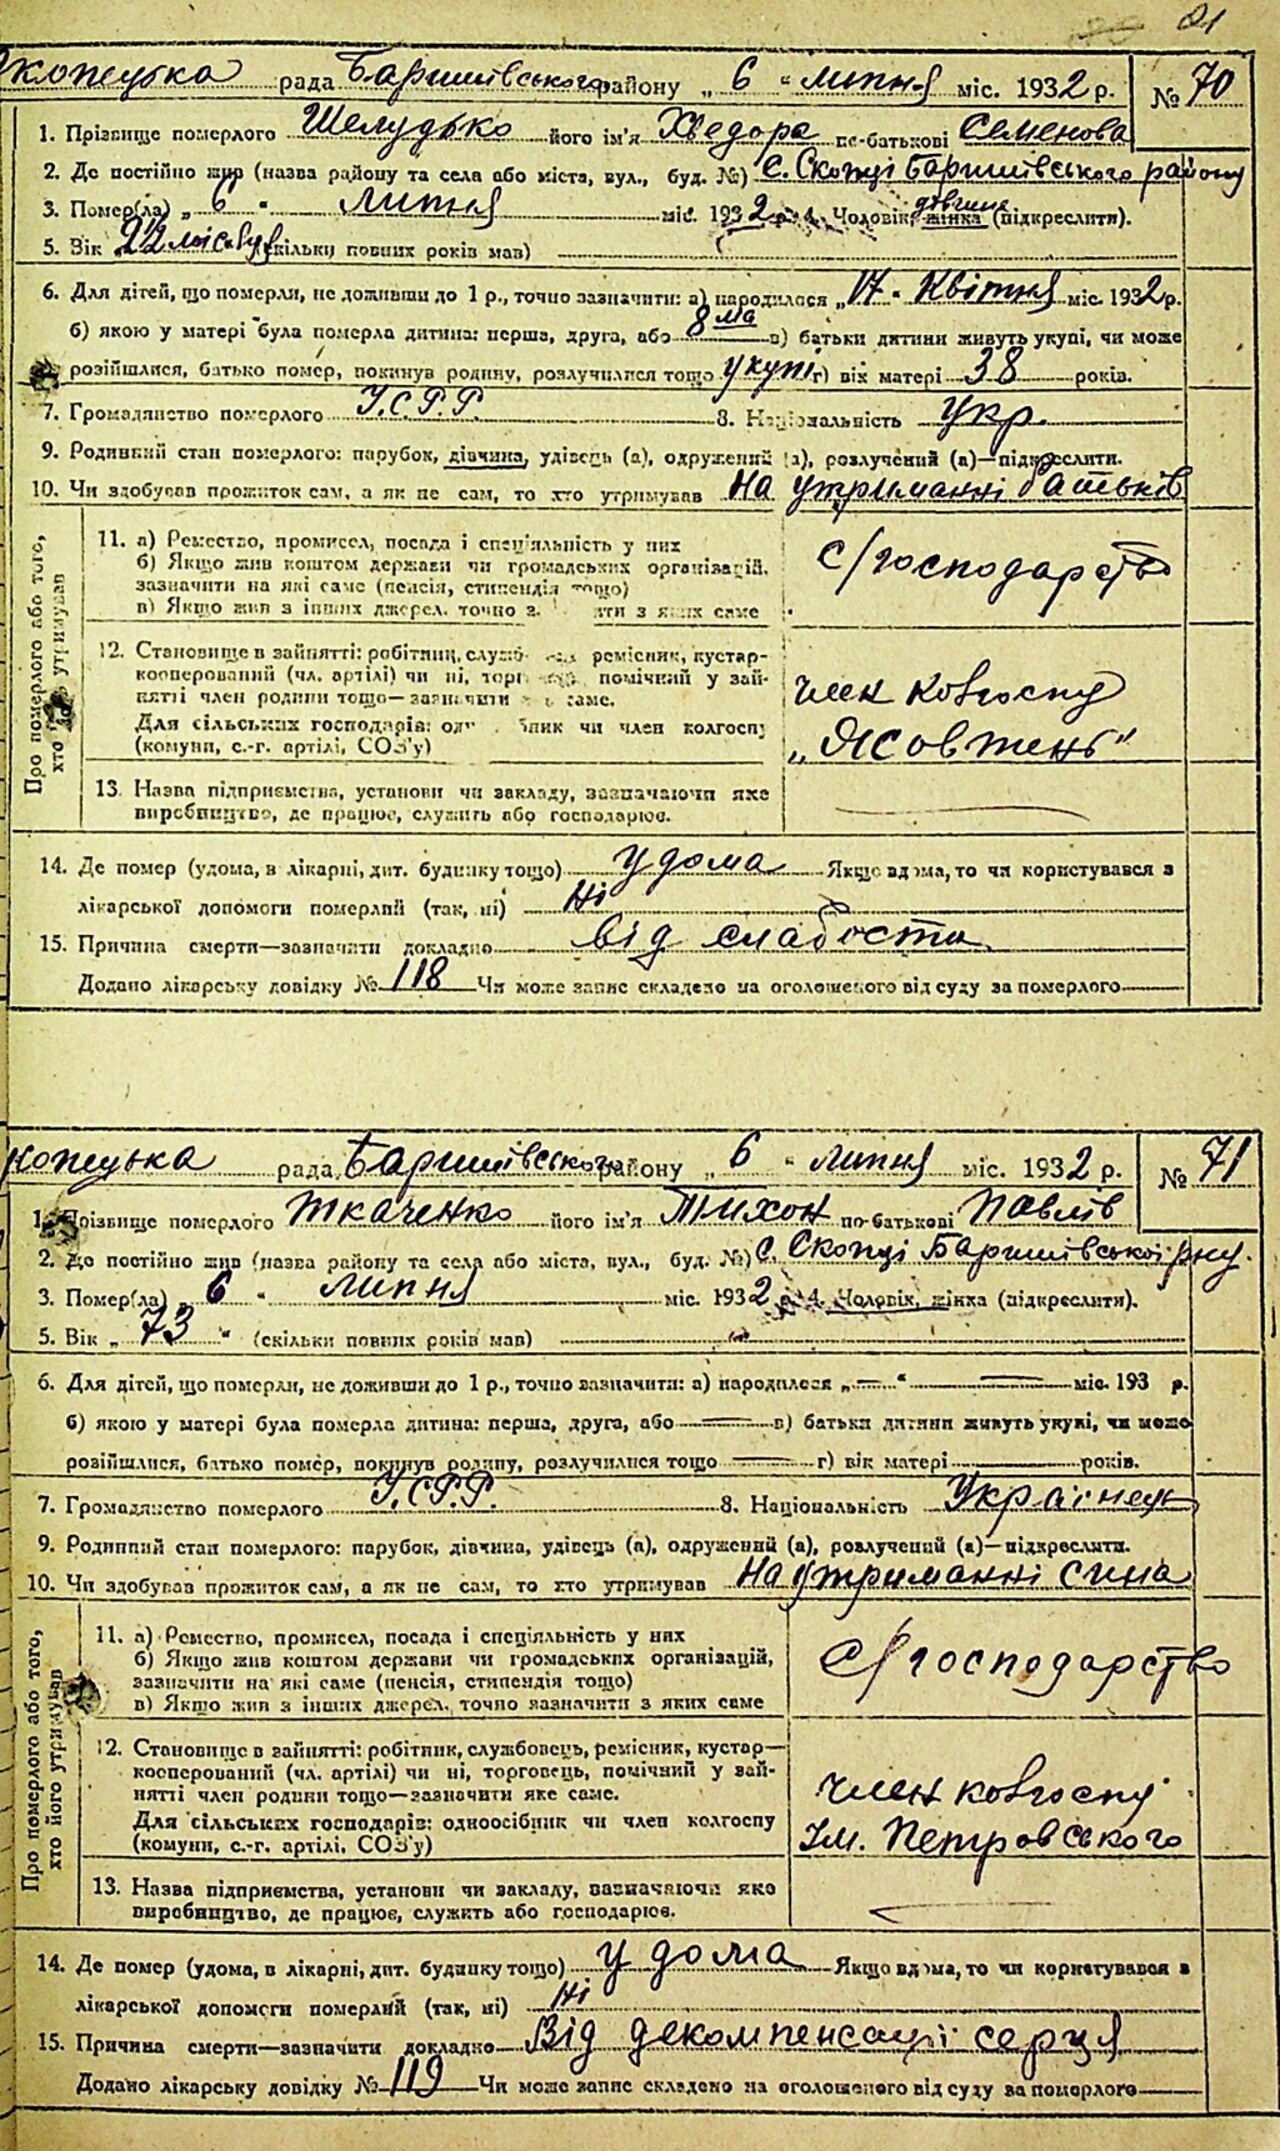 21
Скопецька рада Баришівського району „ 6 “ липня міс. 1932 р. № 70
1. Прізвище померлого Шелудько його ім'я Хведора по-батькові Семенова
2. Де постійно жив (назва району та села або міста, вул., буд. №) С. Скопці Баришівського району
3. Помер(ла) „ 6 “ липня міс. 1932 р. 4. Чоловік, жінка (підкреслити).
дівчина
5. Вік (скільки повних років мав)
6. Для дітей, що померли, не доживши до 1 р., точно зазначити: а) народилася „17“ Квітня міс. 1932 р.
б) якою у матері була померла дитина: перша, друга, або 8ма в) батьки дитини живуть укупі, чи може
розійшлися, батько помер, покинув родину, розлучилися тощо укупі г) вік матері 38 років.
7. Громадянство померлого У.С.Р.Р. 8. Національність укр.
9. Родинний стан померлого: парубок, дівчина, удівець (а), одружений (а), розлучений (а)—підкреслити.
10. Чи здобував прожиток сам, а як не сам, то хто утримував На утриманні батьків
Про померлого або того, хто його утримував
11. а) Ремество, промисел, посада і спеціяльність у них
б) Якщо жив коштом держави чи громадських організацій,
зазначити на які саме (пенсія, стипендія тощо)
в) Якщо жив з інших джерел, точно з яких саме
с/господарство
12. Становище в зайнятті: робітник, ремісник, кустар-
кооперований (чл. артілі) чи ні, помічний у зай-
нятті член родини тощо—зазначити саме.
Для сільських господарів: чи член колгоспу
(комуни, с.-г. артілі, СОЗ'у)
член ковгоспу
„Жовтень“
13. Назва підприємства, установи чи закладу, зазначаючи яке
виробництво, де працює, служить або господарює.
14. Де помер (удома, в лікарні, дит. будинку тощо) у дома Якщо вдома, то чи користувався з
лікарської допомоги померлий (так, ні) Ні
15. Причина смерти—зазначити докладно від слабости
Додано лікарську довідку № 118 Чи може запис складено на оголошеного від суду за померлого
копецька рада Баришівського району „ 6 “ липня міс. 1932 р. № 71
1. Прізвище померлого Ткаченко його ім'я Тихон по-батькові Павлів
2. Де постійно жив (назва району та села або міста, вул., буд. №) С. Скопці Баришівської рну.
3. Помер(ла) „ 6 “ липня міс. 1932 р. 4. Чоловік, жінка (підкреслити).
5. Вік „ 73 “ (скільки повних років мав)
6. Для дітей, що померли, не доживши до 1 р., точно зазначити: а) народилася „—“ — міс. 193 р.
б) якою у матері була померла дитина: перша, друга, або — в) батьки дитини живуть укупі, чи може
розійшлися, батько помер, покинув родину, розлучилися тощо — г) вік матері років.
7. Громадянство померлого У.С.Р.Р. 8. Національність Українець
9. Родинний стан померлого: парубок, дівчина, удівець (а), одружений (а), розлучений (а)—підкреслити.
10. Чи здобував прожиток сам, а як не сам, то хто утримував На утриманні сина
Про померлого або того, хто його утримував
11. а) Ремество, промисел, посада і спеціяльність у них
б) Якщо жив коштом держави чи громадських організацій,
зазначити на які саме (пенсія, стипендія тощо)
в) Якщо жив з інших джерел, точно зазначити з яких саме
с/господарство
12. Становище в зайнятті: робітник, службовець, ремісник, кустар—
кооперований (чл. артілі) чи ні, торговець, помічний у зай-
нятті член родини тощо—зазначити яке саме.
Для сільських господарів: одноосібник чи член колгоспу
(комуни, с.-г. артілі, СОЗ'у)
член ковгоспу
Ім. Петровського
13. Назва підприємства, установи чи закладу, зазначаючи яке
виробництво, де працює, служить або господарює.
14. Де помер (удома, в лікарні, дит. будинку тощо) у дома Якщо вдома, то чи користувався з
лікарської допомоги померлий (так, ні) Ні
15. Причина смерти—зазначити докладно Від декомпенсації серця
Додано лікарську довідку № 119 Чи може запис складено на оголошеного від суду за померлого